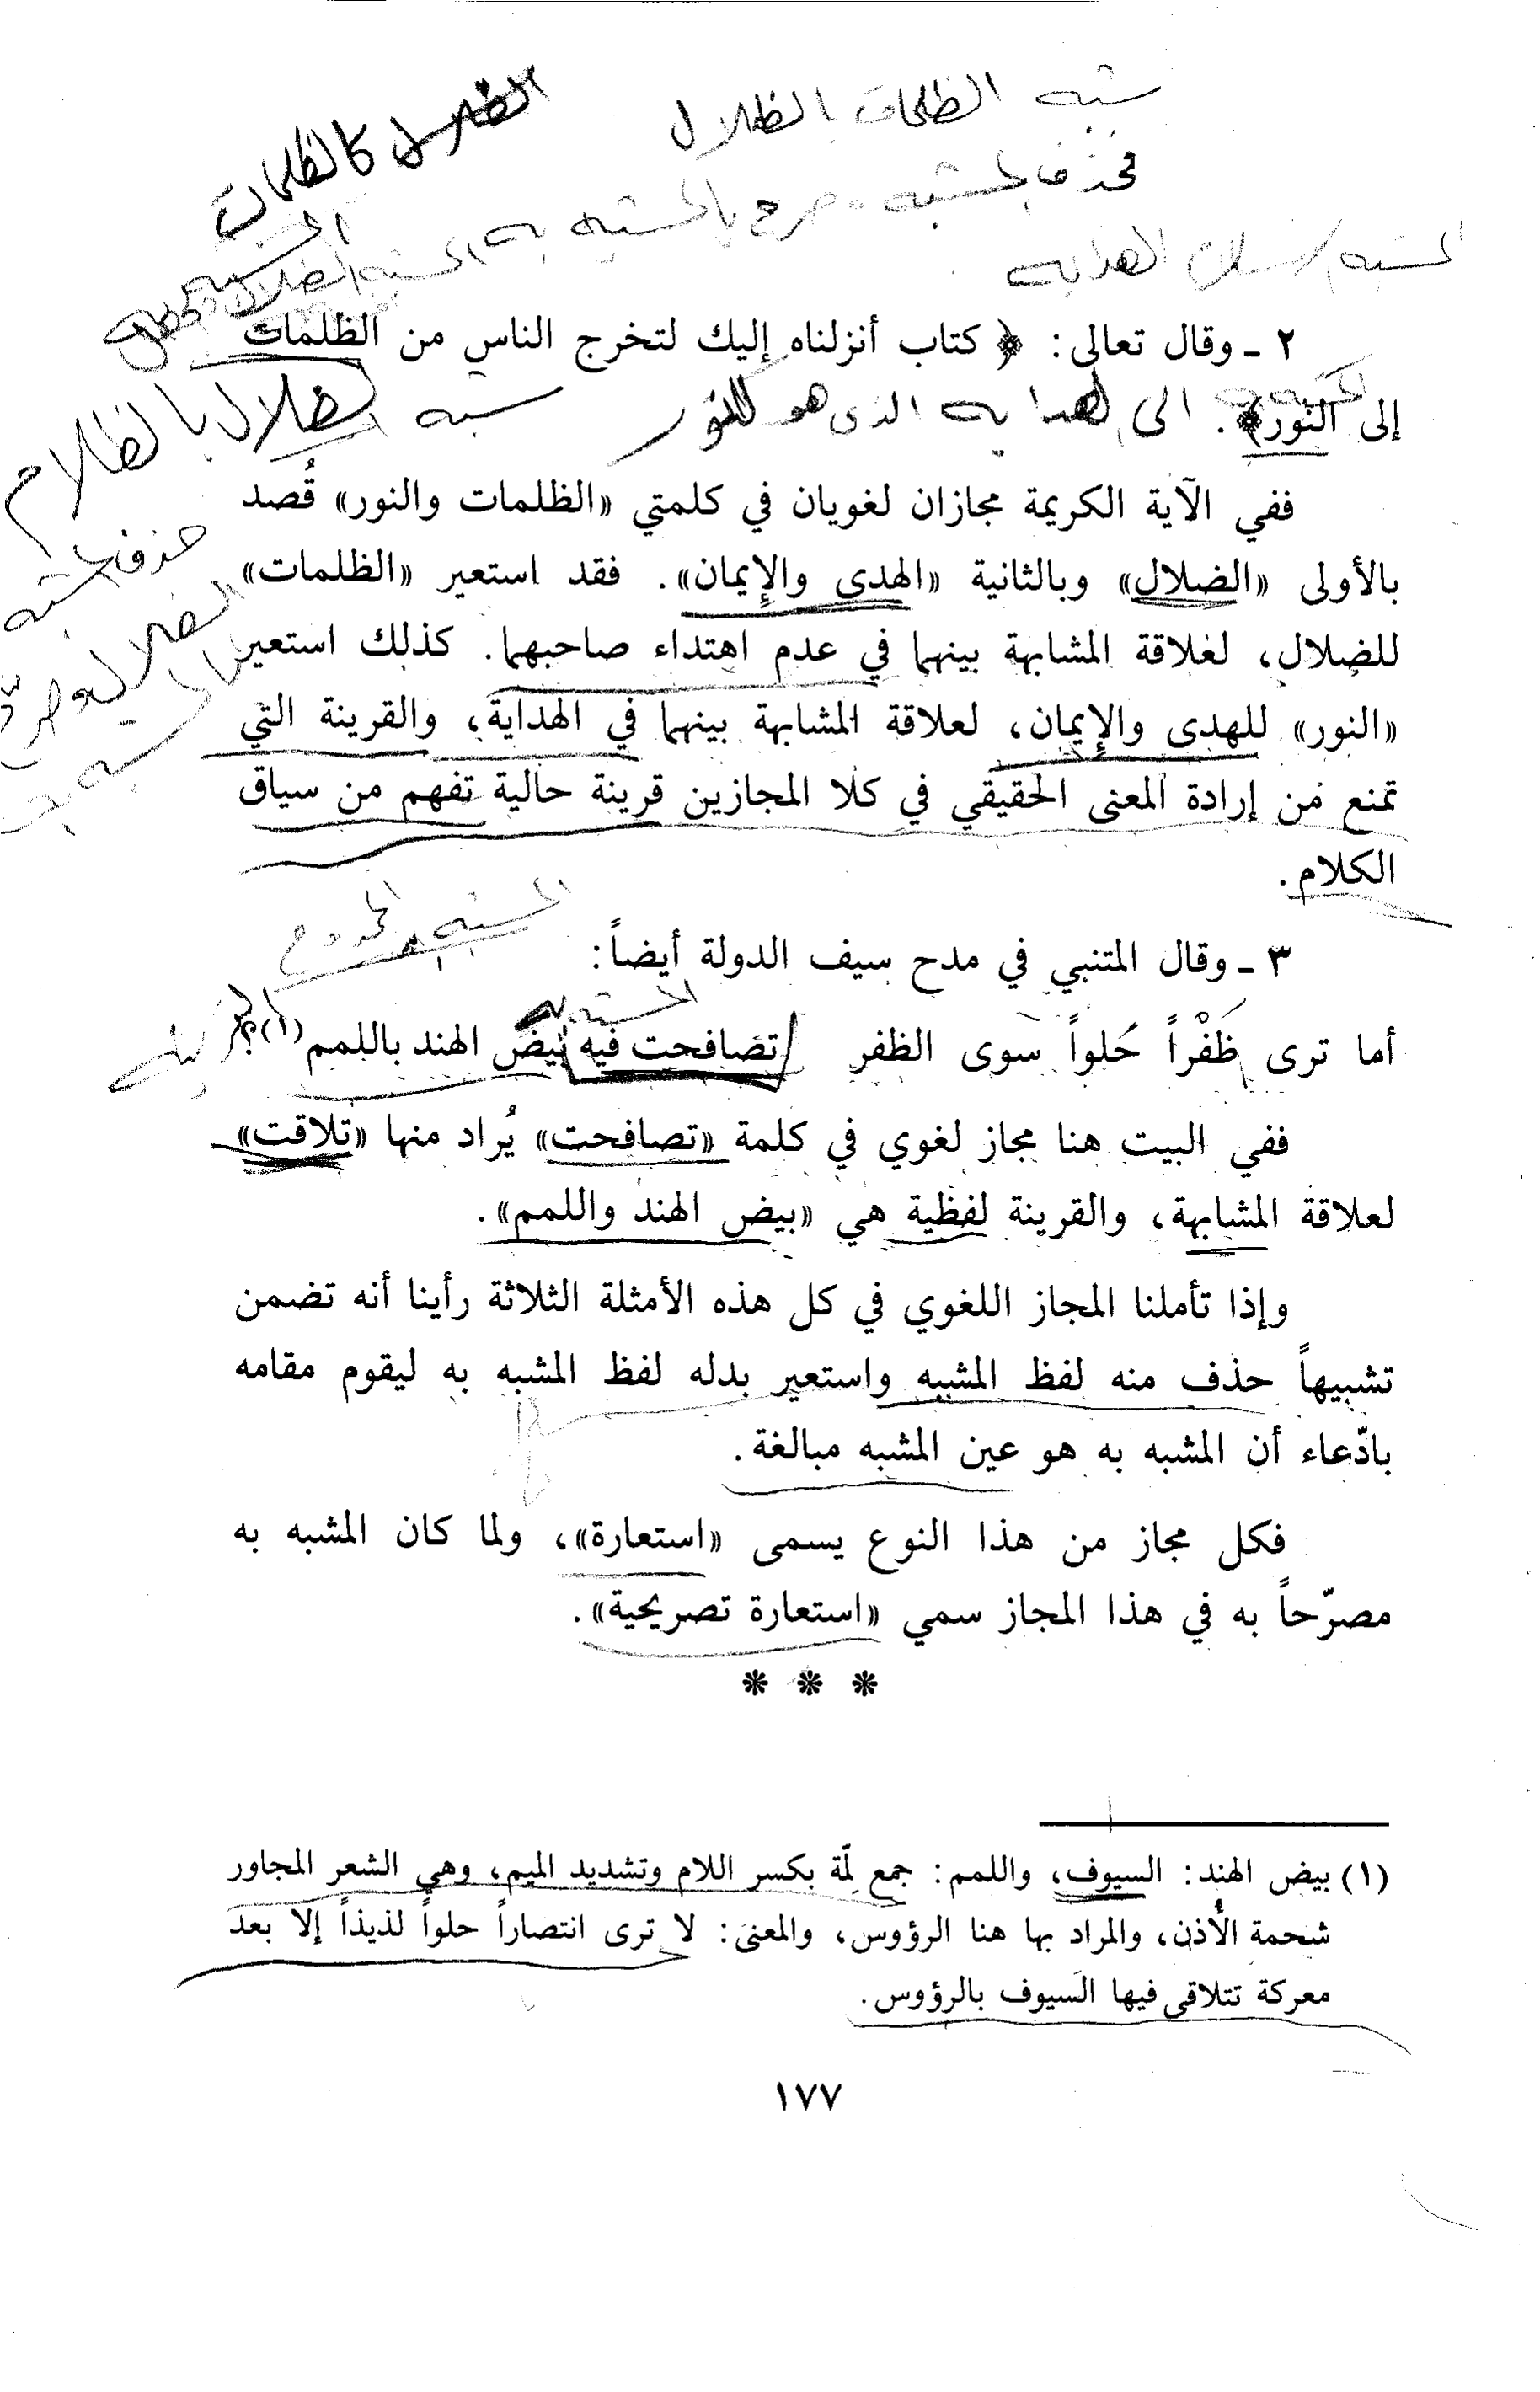 شبه الظلمات بالظلال
الظلال كالظلمات
فحذف المشبه وصرح بالمشبه به
المشبه الضلال
المشبه الهداية
٢ ـ وقال تعالى: ﴿ كتاب أنزلناه إليك لتخرج الناس من الظلمات
إلى النور﴾.
الى الهداية الذى هو النور
شبه الضلال بالظلام
حذف المشبه
الضلال
ففي الآية الكريمة مجازان لغويان في كلمتي «الظلمات والنور» قُصد
بالأولى «الضلال» وبالثانية «الهدى والإيمان». فقد استعير «الظلمات»
للضلال، لعلاقة المشابهة بينهما في عدم اهتداء صاحبهما. كذلك استعير
«النور» للهدى والإيمان، لعلاقة المشابهة بينهما في الهداية، والقرينة التي
تمنع من إرادة المعنى الحقيقي في كلا المجازين قرينة حالية تفهم من سياق
الكلام.
المشبه
٣ ـ وقال المتنبي في مدح سيف الدولة أيضاً:
المشبه به
أما ترى ظَفْراً حَلواً سوى الظفر تصافحت فيه بيض الهند باللمم(١)؟
ففي البيت هنا مجاز لغوي في كلمة «تصافحت» يُراد منها «تلاقت»
لعلاقة المشابهة، والقرينة لفظية هي «بيض الهند واللمم».
وإذا تأملنا المجاز اللغوي في كل هذه الأمثلة الثلاثة رأينا أنه تضمن
تشبيهاً حذف منه لفظ المشبه واستعير بدله لفظ المشبه به ليقوم مقامه
بادّعاء أن المشبه به هو عين المشبه مبالغة.
فكل مجاز من هذا النوع يسمى «استعارة»، ولما كان المشبه به
مصرّحاً به في هذا المجاز سمي «استعارة تصريحية».
* * *
(١) بيض الهند: السيوف، واللمم: جمع لِمّة بكسر اللام وتشديد الميم، وهي الشعر المجاور
شحمة الأُذن، والمراد بها هنا الرؤوس، والمعنى: لا ترى انتصاراً حلواً لذيذاً إلا بعد
معركة تتلاقى فيها السيوف بالرؤوس.
١٧٧